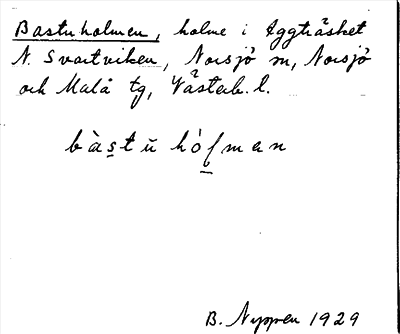 Bastuholmen, holme i Aggträsket
N. Svartviken, Norsjö sn, Norsjö
och Malå tg, Västerb. l.
bàs̱tŭ hóḻman
B. Nyppen 1929